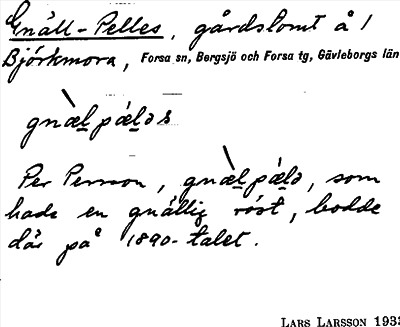 Gnäll-Pelles, gårdslomt å 1
Björkmora, Forsa sn, Bergsjö och Forsa tg, Gävleborgs län
gnæ̀lpǽləs
Per Persson, gnæ̀lpǽlə, som
hade en gnällig röst, bodde
där på 1890-talet.
LARS LARSSON 1933